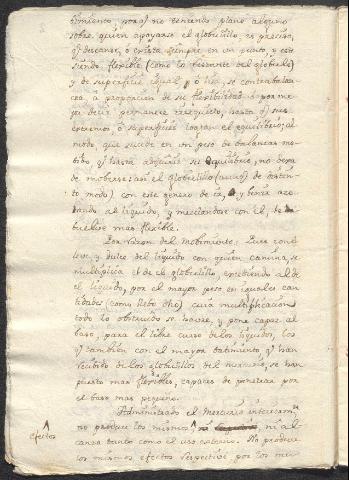 timiento, porq no teniendo plano alguno
sobre quien apoyarse el globecillo, es preciso,
q descanse, ó exista siempre en un punto, y este
siendo flexible (como lo presume del globecillo)
y de superficie igual, y ó lisa, se contrabalan
cea à proporcion de su flexibilidad ò por me
jor decir permanece inequieto, hasta q sus
extremos, ò superficies logran el equilibrio; al
modo, que sucede en un peso de balanzas mo-
bido, q hasta adquirir su equilibrio, no deja
de moberse; asi el globecillo (aunq de distin-
to modo) con este genero de ir, y benir azo-
tando al liquido, y mezclandose con él, le
buelve mas flexible.
Por razon del mobimiento: Pues como
leve, y dulce del liquido con quien camina, se
multiplica el de el globecillo, excediendo al de
el liquido, por el mayor peso en iguales can
tidades (como llebo dho) cuia multiplicacion
todo lo obstruido se havre, y pone capaz al
baso, para el libre curso de los liquidos, los
q tambien con el mayor batimiento, q han
recibido de los globecillos del mercurio, se han
puesto mas flexibles, capaces de penetrar por
el baso mas pequeño.
Administrado el Mercurio interiorm.te
no produce los mismos, ni al-
efectos
canza tanto como el uso externo. No produce
los mismos efectos respectivè por los me-